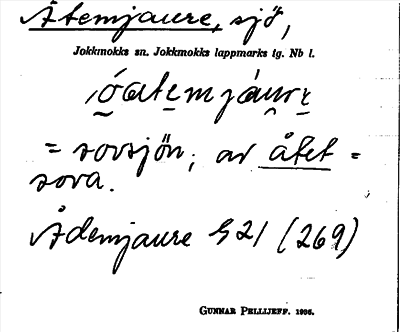 Åtemjaure, sjö,
Jokkmokks sn. Jokkmokks lappmarks tg. Nb l.
óatemjáurε
= sovsjön; av åtet =
sova.
Ådemjaure S 21 (269)
GUNNAR PELLIJEFF. 1936.